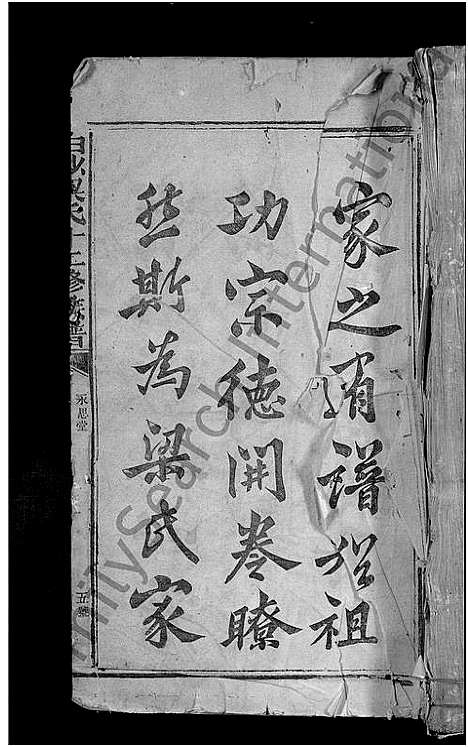 家之有譜猶祖
功宗德開卷瞭
然斯為梁氏家
修族譜
永思堂
五號
FamilySearch International